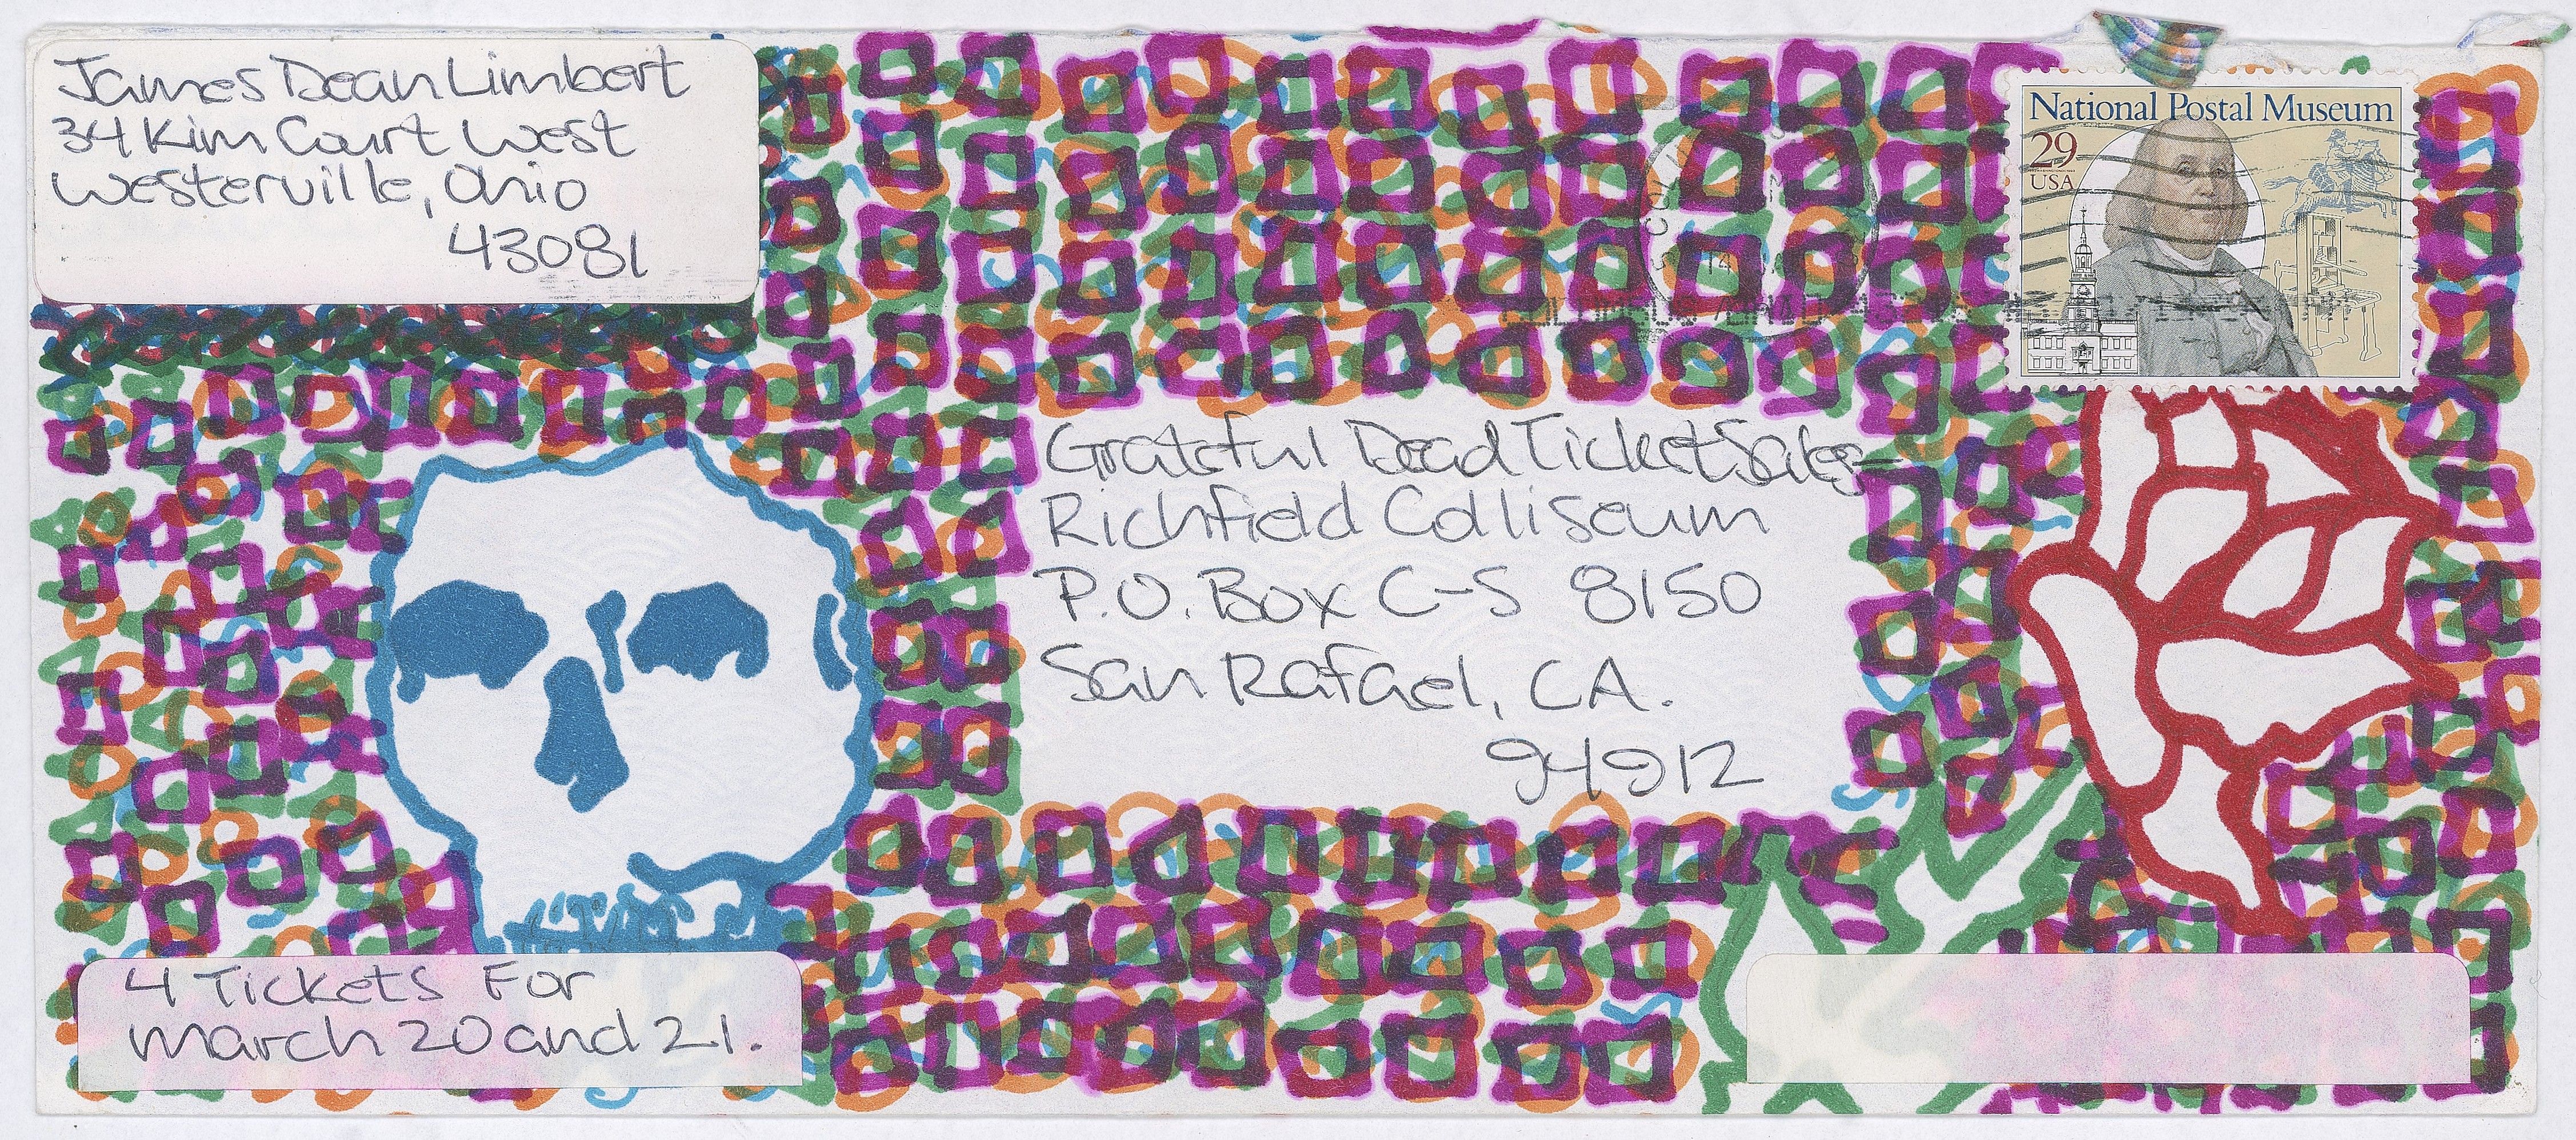 James Dean Limbert
34 Kim Court West
Westerville, Ohio
43081
National Postal Museum
29
USA
Grateful Dead Ticket Sales-
Richfield Colliseum
P.O. Box C-S 8150
San Rafael, CA.
94912
4 Tickets For
March 20 and 21.